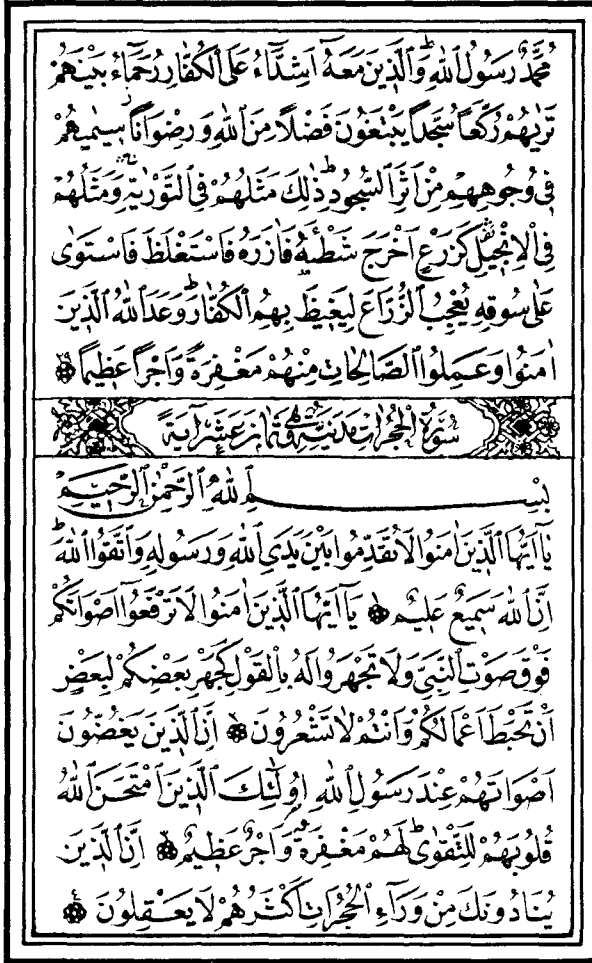 مُحَمَّدٌ رَسُولُ اللّٰهِ وَالَّذ۪ينَ مَعَهُٓ اَشِدَّٓاءُ عَلَى الْكُفَّارِ رُحَمَٓاءُ بَيْنَهُمْ
تَرٰيهُمْ رُكَّعاً سُجَّداً يَبْتَغُونَ فَضْلاً مِنَ اللّٰهِ وَرِضْوَاناًۘ س۪يمٰيهُمْ
ف۪ي وُجُوهِهِمْ مِنْ اَثَرِ السُّجُودِۜ ذٰلِكَ مَثَلُهُمْ فِي التَّوْرٰيةِۚ وَمَثَلُهُمْ
فِي الْاِنْج۪يلِ۠ كَزَرْعٍ اَخْرَجَ شَطْـَٔهُ فَاٰزَرَهُ فَاسْتَغْلَظَ فَاسْتَوٰى
عَلٰى سُوقِه۪ يُعْجِبُ الزُّرَّاعَ لِيَغ۪يظَ بِهِمُ الْكُفَّارَۜ وَعَدَ اللّٰهُ الَّذ۪ينَ
اٰمَنُوا وَعَمِلُوا الصَّالِحَاتِ مِنْهُمْ مَغْفِرَةً وَاَجْراً عَظ۪يماً ﴿٢٩﴾
سُورَةُ الْحُجُرَاتِ مَدَنِيَّةٌ وَهِيَ ثَمَانِيَ عَشَرَ اٰيَةً
بِسْمِ اللّٰهِ الرَّحْمٰنِ الرَّح۪يمِ
يَٓا اَيُّهَا الَّذ۪ينَ اٰمَنُوا لَا تُقَدِّمُوا بَيْنَ يَدَيِ اللّٰهِ وَرَسُولِه۪ وَاتَّقُوا اللّٰهَۜ
اِنَّ اللّٰهَ سَم۪يعٌ عَل۪يمٌ ﴿١﴾ يَٓا اَيُّهَا الَّذ۪ينَ اٰمَنُوا لَا تَرْفَعُٓوا اَصْوَاتَكُمْ
فَوْقَ صَوْتِ النَّبِيِّ وَلَا تَجْهَرُوا لَهُ بِالْقَوْلِ كَجَهْرِ بَعْضِكُمْ لِبَعْضٍ
اَنْ تَحْبَطَ اَعْمَالُكُمْ وَاَنْتُمْ لَا تَشْعُرُونَ ﴿٢﴾ اِنَّ الَّذ۪ينَ يَغُضُّونَ
اَصْوَاتَهُمْ عِنْدَ رَسُولِ اللّٰهِ اُو۬لٰٓئِكَ الَّذ۪ينَ امْتَحَنَ اللّٰهُ
قُلُوبَهُمْ لِلتَّقْوٰىۜ لَهُمْ مَغْفِرَةٌ وَاَجْرٌ عَظ۪يمٌ ﴿٣﴾ اِنَّ الَّذ۪ينَ
يُنَادُونَكَ مِنْ وَرَٓاءِ الْحُجُرَاتِ اَكْثَرُهُمْ لَا يَعْقِلُونَ ﴿٤﴾